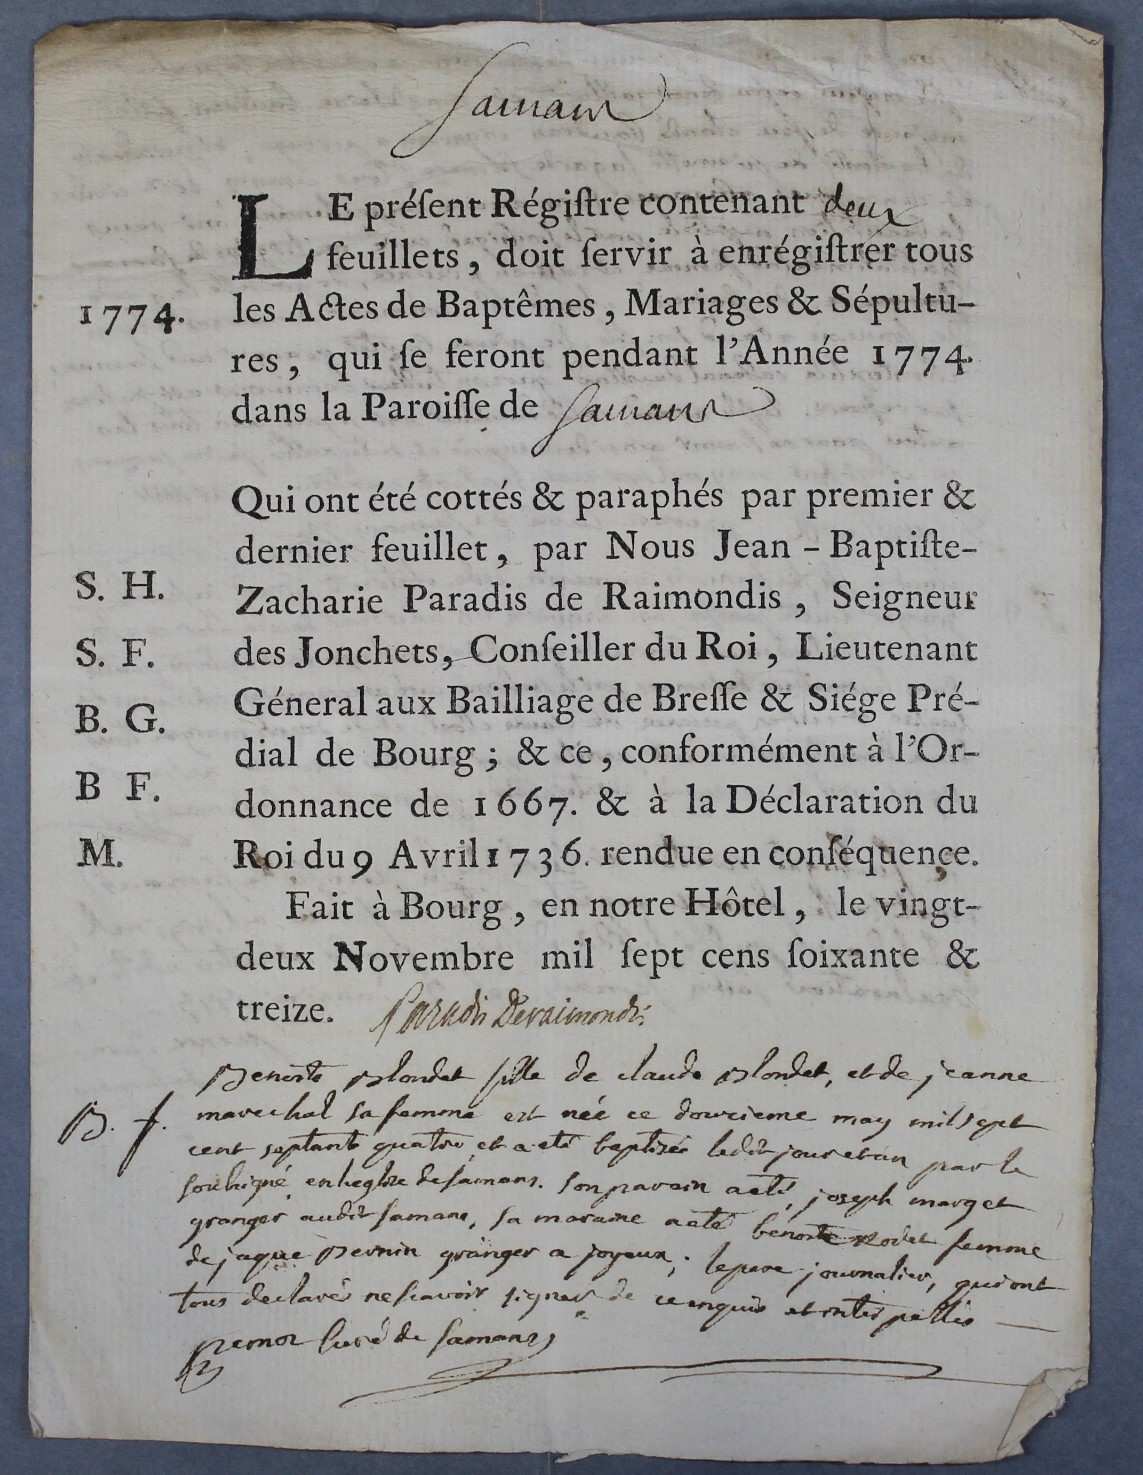 Samans
LE préſent Régiſtre contenant deux
feuillets, doit ſervir à enrégiſtrer tous
1774. les Actes de Baptêmes, Mariages & Sépultu-
res, qui ſe feront pendant l'Année 1774.
dans la Paroiſſe de Samans
Qui ont été cottés & paraphés par premier &
dernier feuillet, par Nous Jean-Baptiſte-
S. H. Zacharie Paradis de Raimondis, Seigneur
S. F. des Jonchets, Conſeiller du Roi, Lieutenant
B. G. Géneral aux Bailliage de Breſſe & Siége Pré-
B F. dial de Bourg; & ce, conformément à l'Or-
donnance de 1667. & à la Déclaration du
M. Roi du 9 Avril 1736. rendue en conſéquençe.
Fait à Bourg, en notre Hôtel, le vingt-
deux Novembre mil ſept cens ſoixante &
treize. Paradis Deraimondis
Benoite Blondet fille de claude Blondet, et de jeanne
B. f. marechal sa femme est née ce douzieme may mil sept
cent septante quatre et a eté baptisée ledit jour et an par le
soussigné en leglise de samans. son parain a eté joseph marget
granger audit samans, sa maraine a eté benoite Rodet femme
de jaque Bernin granger a joyeux; le pere journalier, qui ont
tous declarés ne scavoir signer de ce enquis et interpellés
curé de samans